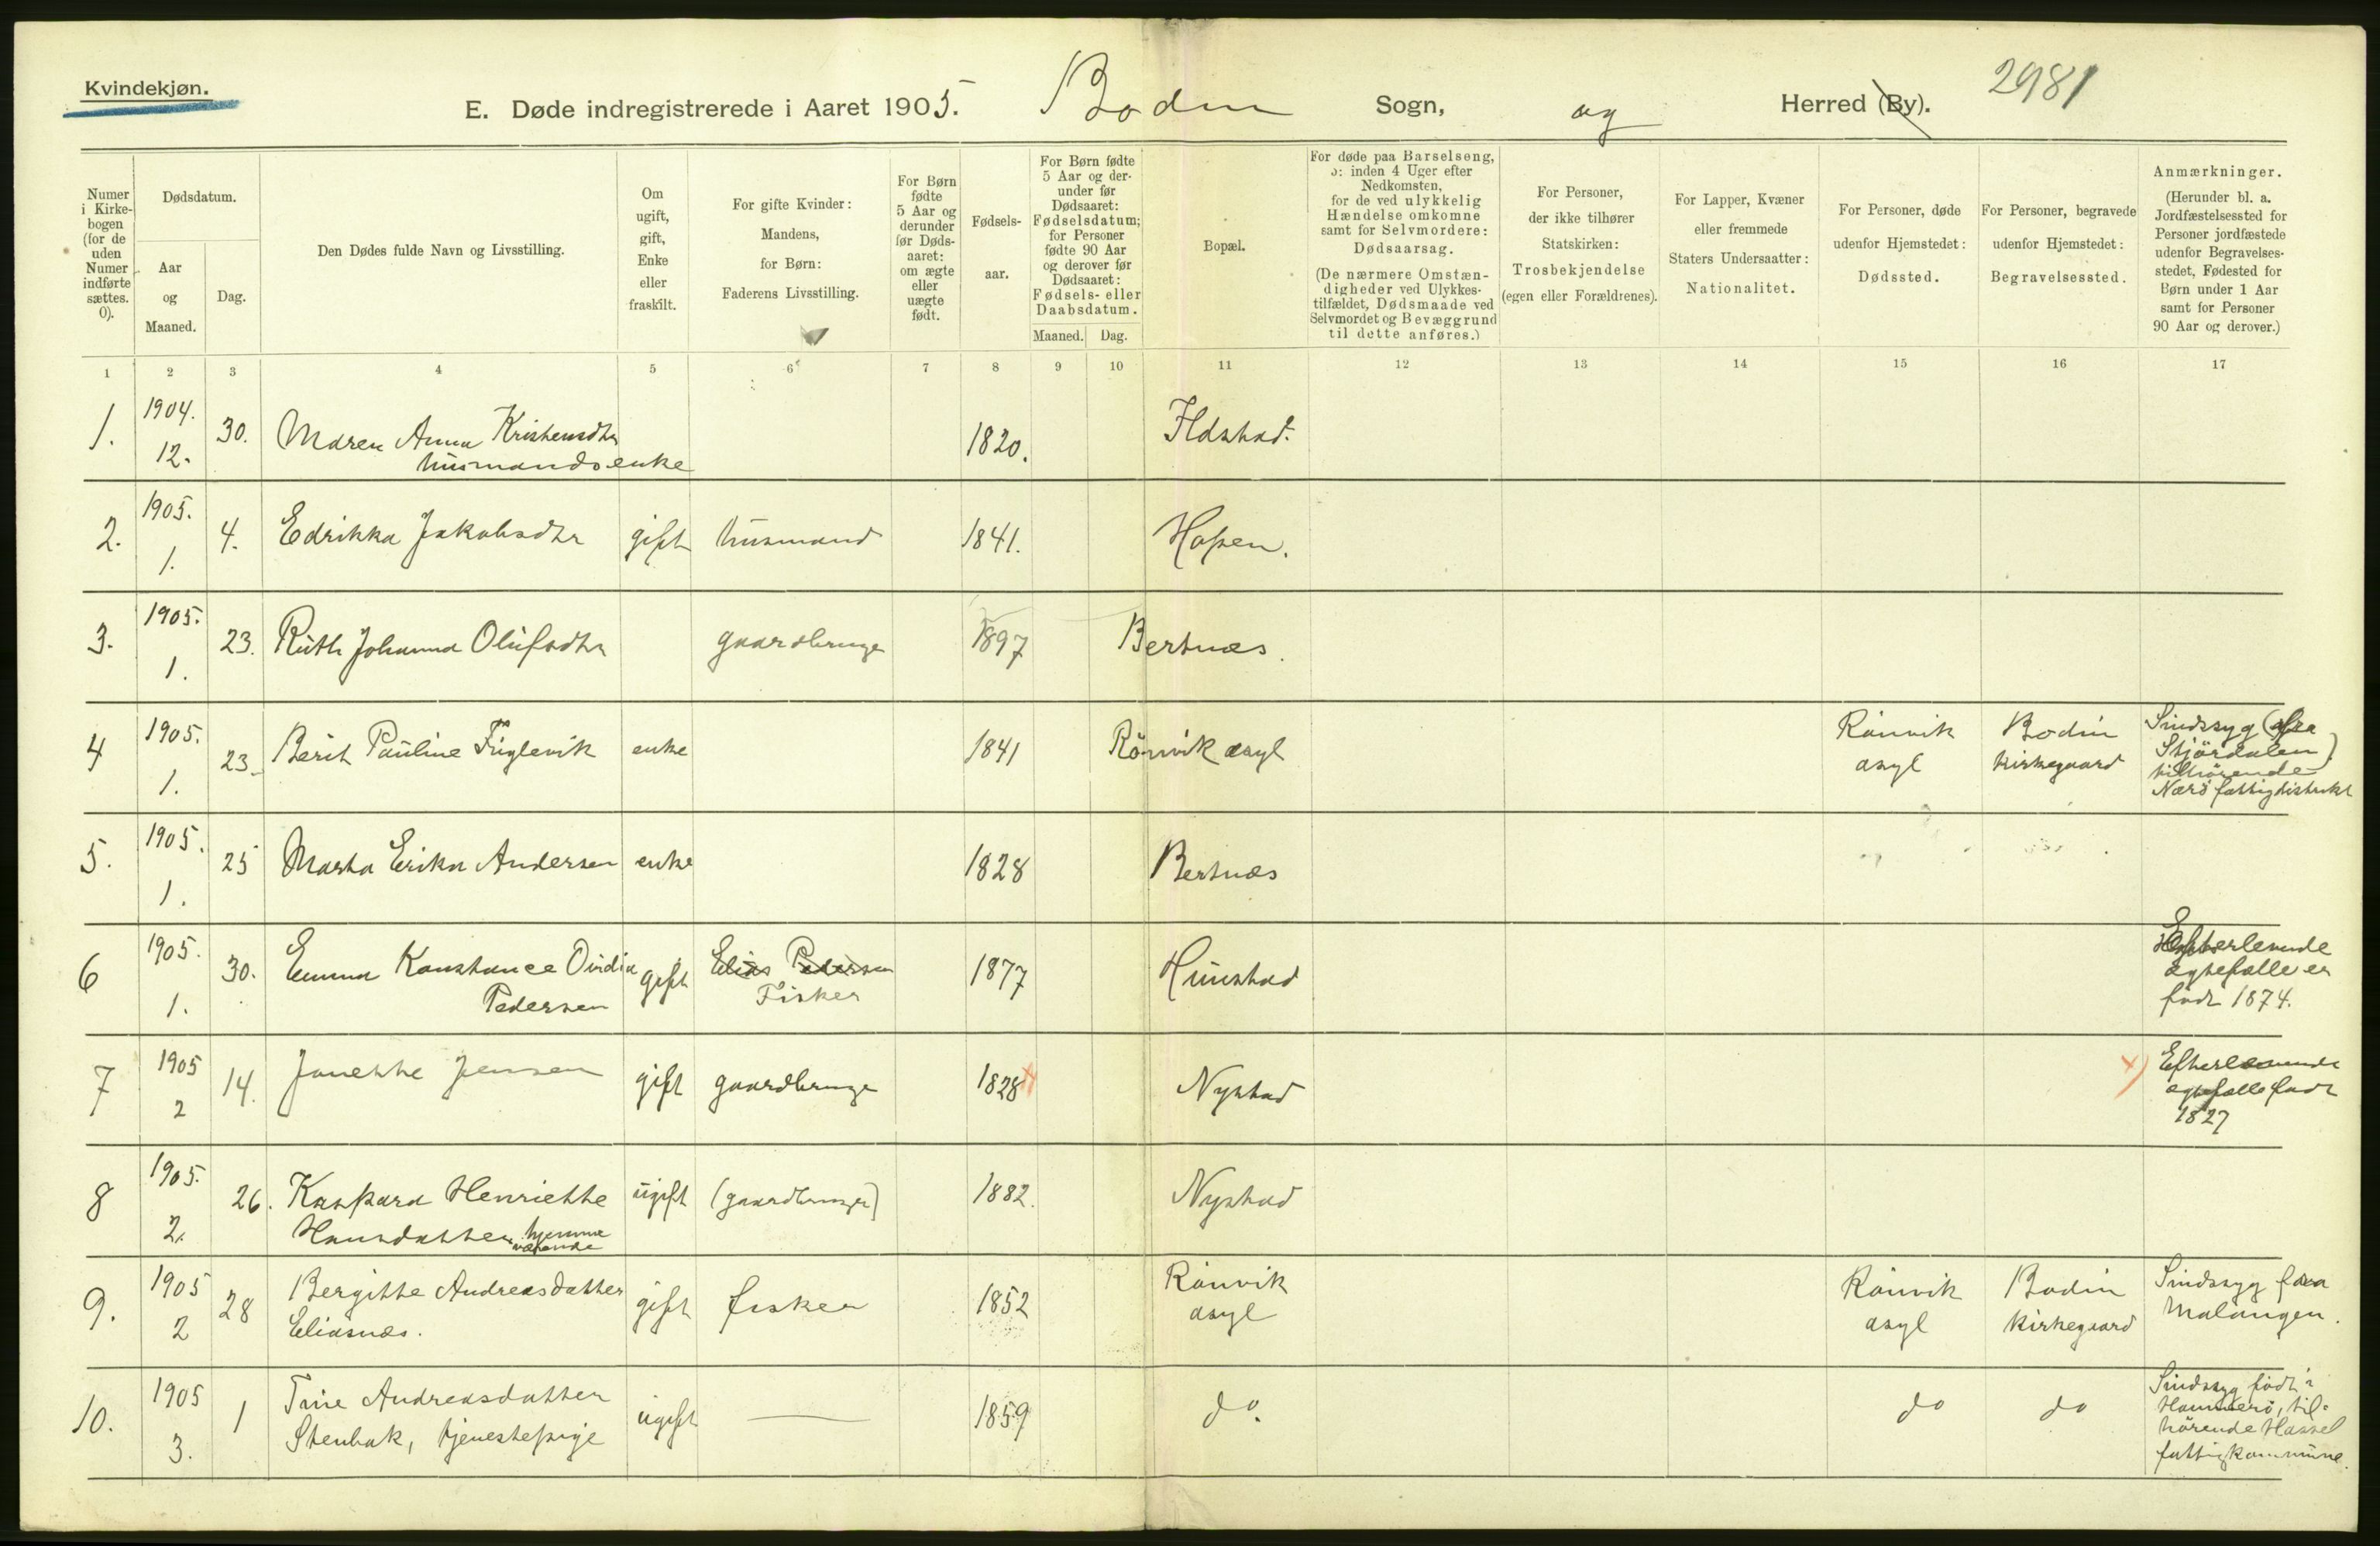 Kvindekjøn.
E. Døde indregistrerede i Aaret 1905. Bodin Sogn, og Herred (By). 2981
Numer i Kirkebogen (for de uden Numer indførte sættes. 0).
Dødsdatum.
Aar og Maaned.
Dag.
Den Dødes fulde Navn og Livsstilling.
Om ugift, gift, Enke eller fraskilt.
For gifte Kvinder: Mandens, for Børn: Faderens Livsstilling.
For Børn fødte 5 Aar og derunder før Dødsaaret: om ægte eller uægte født.
Fødselsaar.
For Børn fødte 5 Aar og derunder før Dødsaaret: Fødselsdatum; for Personer fødte 90 Aar og derover før Dødsaaret: Fødsels- eller Daabsdatum.
Maaned. Dag.
Bopæl.
For døde paa Barselseng, ɔ: inden 4 Uger efter Nedkomsten, for de ved ulykkelig Hændelse omkomne samt for Selvmordere: Dødsaarsag.
(De nærmere Omstændigheder ved Ulykkestilfældet, Dødsmaade ved Selvmordet og Bevæggrund til dette anføres.)
For Personer, der ikke tilhører Statskirken: Trosbekjendelse (egen eller Forældrenes).
For Lapper, Kvæner eller fremmede Staters Undersaatter: Nationalitet.
For Personer, døde udenfor Hjemstedet: Dødssted.
For Personer, begravede udenfor Hjemstedet: Begravelsessted.
Anmærkninger.
(Herunder bl. a. Jordfæstelsessted for Personer jordfæstede udenfor Begravelsesstedet, Fødested for Børn under 1 Aar samt for Personer 90 Aar og derover.)
1 2 3 4 5 6 7 8 9 10 11 12 13 14 15 16 17
1. 1904. 12. 30. Maren Anna Kristensdtr 1820. Ildstad.
husmandsenke
2. 1905. 1. 4. Edrikka Jakobsdtr gift husmand 1841. Hopen.
3. 1905. 1. 23. Ruth Johanna Olufsdtr gaardbruger 1897 Bertnæs.
4 1905. 1. 23. Berit Pauline Fuglevik enke 1841 Rönvik asyl Rönvik asyl Bodin kirkegaard Sindssyg (fra
Stjördalen)
tilhörende
Nærö fattigdistrikt
5. 1905. 1. 25 Marta Erika Andersen enke 1828 Bertnæs
6 1905. 1. 30. Emma Konstance Ovidia gift Elias Pedersen 1877 Hunstad Efterlevende
Pedersen Fisker ægtefælle er
född 1874.
7 1905 2 14. Janette Jensen gift gaardbruger 1828 x) Nystad x) Efterlevende
ægtefælle född
1827
8 1905. 2. 26. Kaspara Henriette ugift (gaardbruger) 1882. Nystad
Hansdatter, hjemme
værende
9. 1905 2 28 Bergitte Andreasdatter gift fisker 1852 Rönvik asyl Rönvik asyl Bodin kirkegaard Sindssyg fra
Eliasnæs. Malangen.
10. 1905 3. 1 Trine Andreasdatter ugift — 1859 do. do do Sindssyg född i
Stenbak, tjenestepige Hammerö, til-
hörende Hassel
fattigkommune.